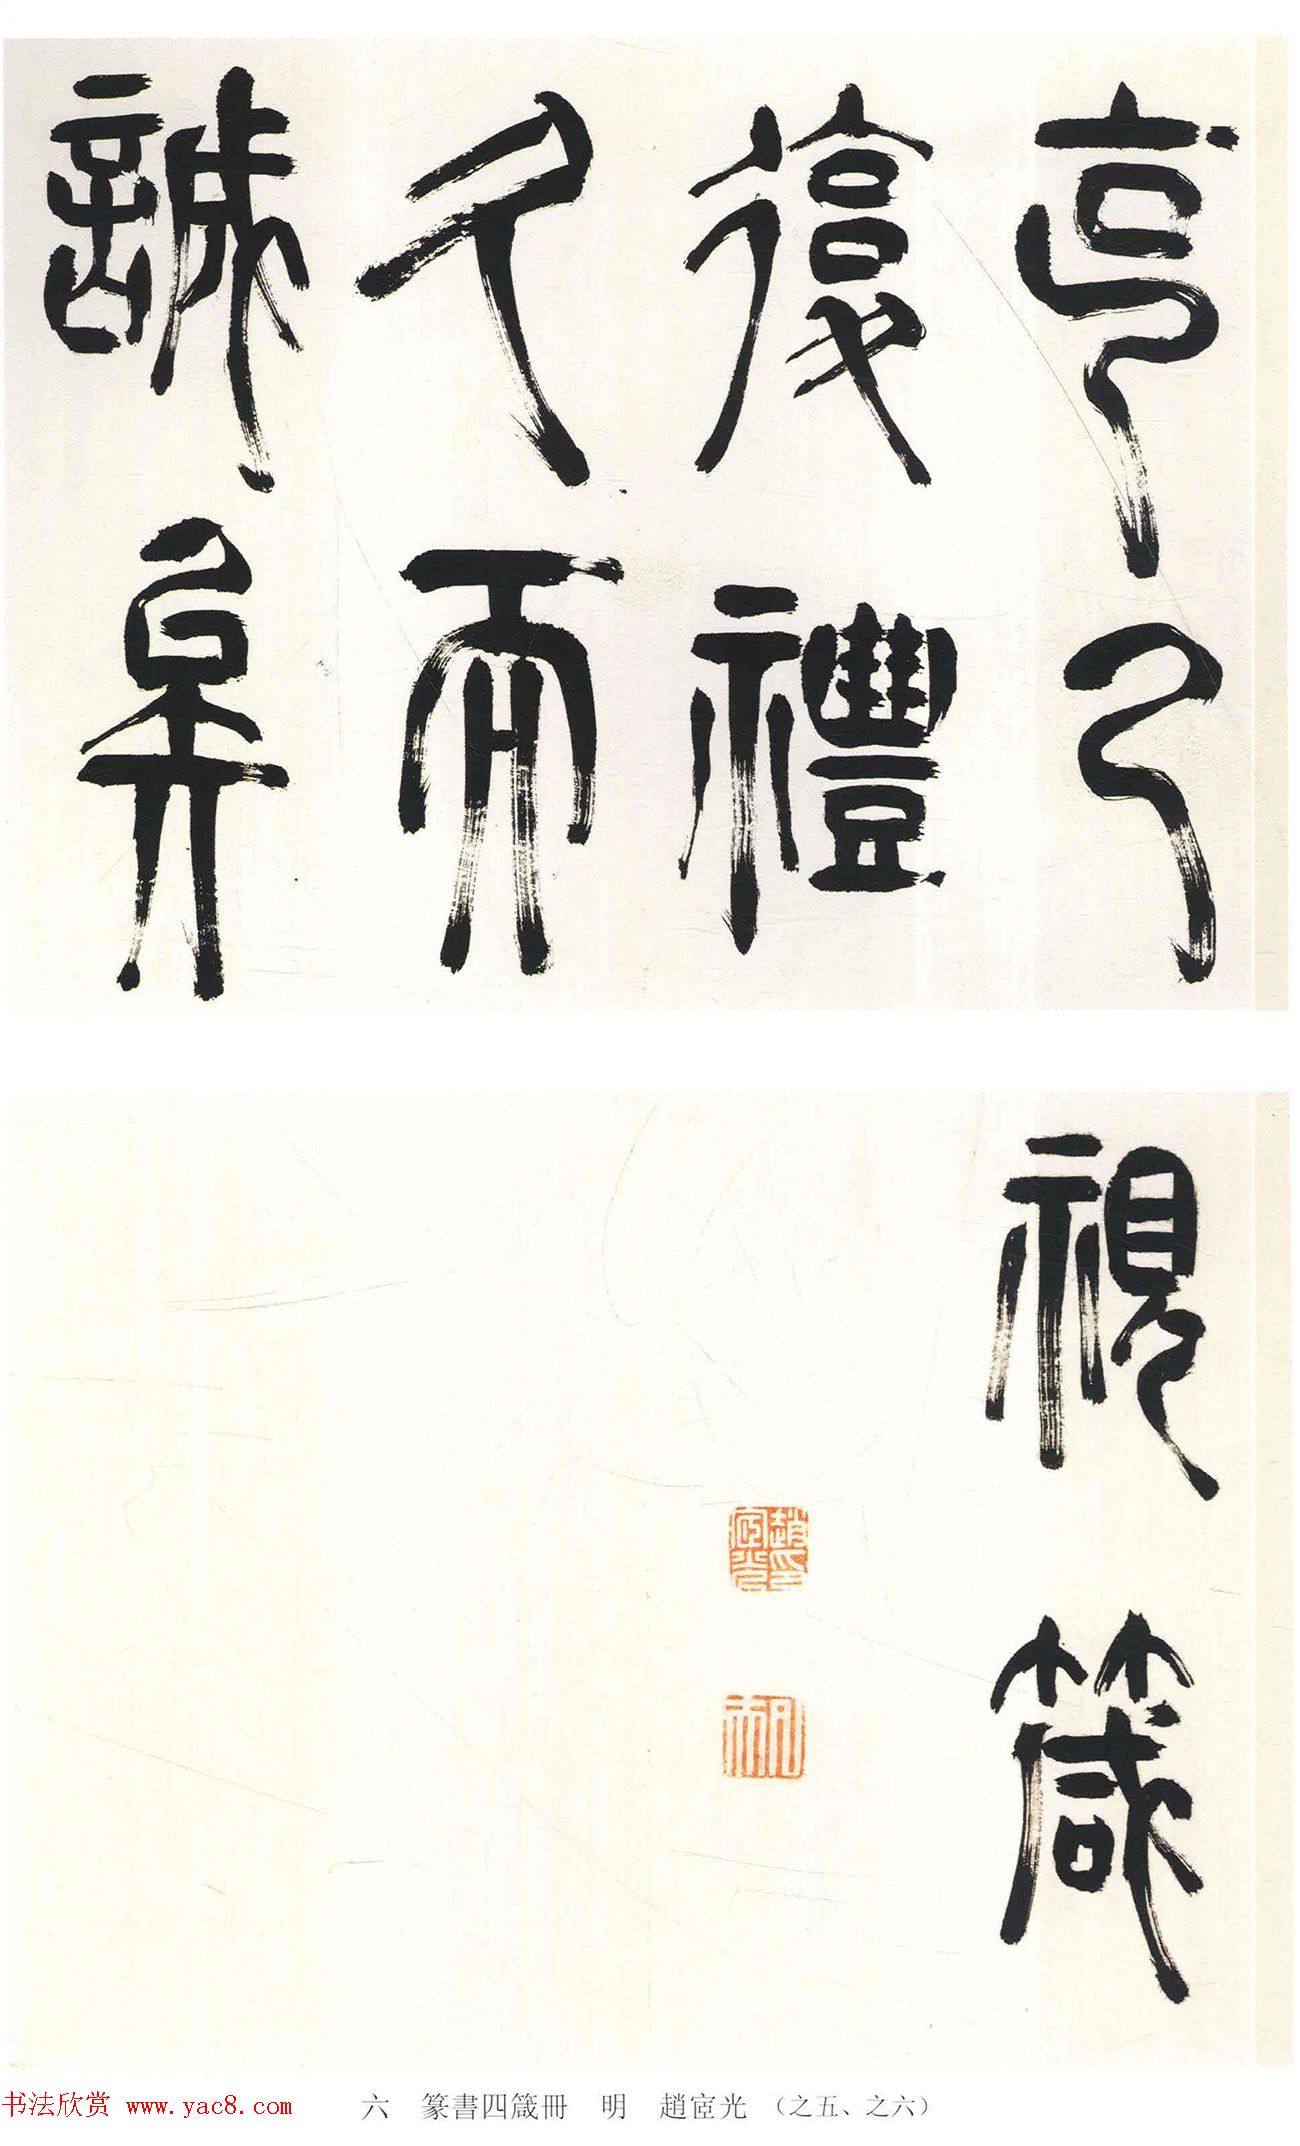 克己
復禮
久而
誠矣
視箴
趙印宧光
凡夫
书法欣赏 www.yac8.com
六 篆書四箴冊 明 趙宧光 （之五、之六）